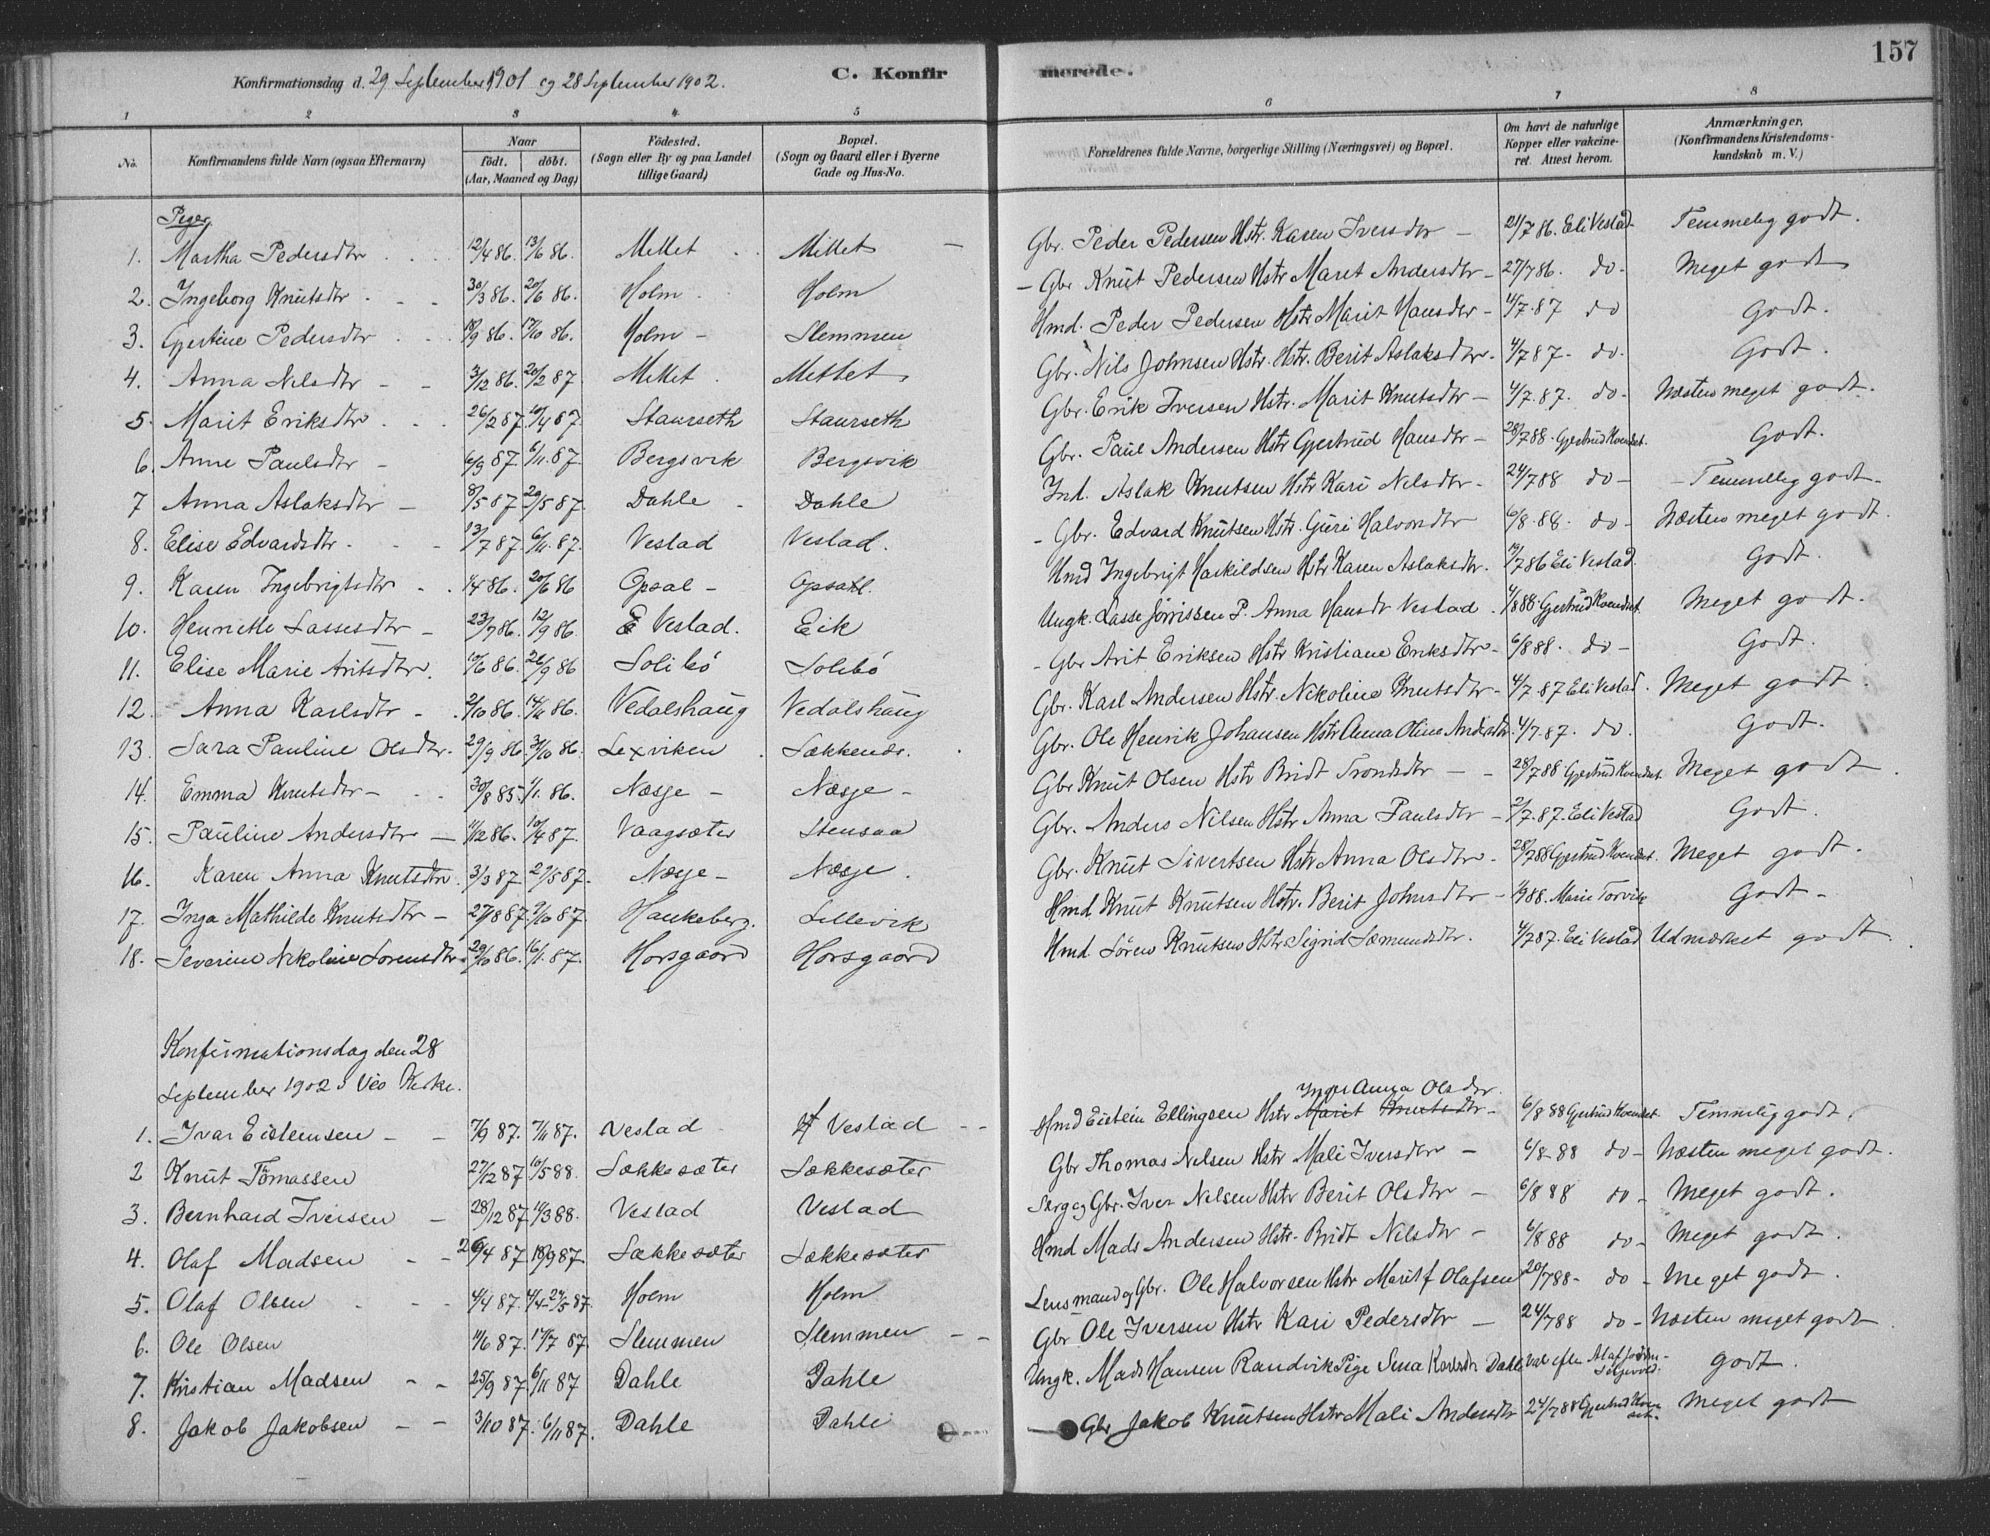 157
Konfirmationsdag d. 29 September 1901 og 28 September 1902.
C. Konfirmerede.
1 2 3 4 5 6 7 8
No. Konfirmandens fulde Navn (ogsaa Efternavn) Naar födt. döbt. (Aar, Maaned og Dag) Födested. (Sogn eller By og paa Landet tillige Gaard) Bopæl. (Sogn og Gaard eller i Byerne Gade og Hus-No. Forældrenes fulde Navne, borgerlige Stilling (Næringsvei) og Bopæl. Om havt de naturlige Kopper eller vakcineret. Attest herom. Anmærkninger. (Konfirmandens Kristendomskundskab m. V.)
Piger
1. Martha Pedersdtr 12/4 86. 13/6 86. Mittet Mittet Gbr. Peder Pedersen Hstr. Karen Iversdtr 21/7 86. Eli Vestad Temmelig godt.
2. Ingeborg Knutsdtr 30/3 86. 20/6 86. Holm Holm Gbr Knut Pedersen Hstr Maret Andersdtr 27/7 86. do Meget godt
3. Gjertine Pedersdtr 18/9 86. 17/10 86. Holm Slemmen Hmd. Peder Pedersen Hstr Marit Hansdtr 4/7 87 do Godt.
4. Anna Nilsdtr 3/12 86. 20/2 87. Mittet Mittet Gbr. Nils Johnsen Hstr. Hstr. Berit Aslaksdtr 4/7 87. do. Godt.
5. Marit Eriksdtr 26/2 87 10/4 87. Staurseth Staurseth Gbr. Erik Iversen Hstr. Marit Knutsdtr 4/7. 87. do Næsten meget godt.
6. Anne Paulsdtr 6/9 87. 6/11. 87. Bergsvik Bergsvik Gbr. Paul Andersen Hstr Gjertrud Hansdtr 28/7 88. Gjertrud Kvendset. Godt.
7 Anna Aslaksdtr 8/5 87 29/5 87. Dahle Dahle Ind. Aslak Knutsen Hstr Kari Nilsdtr 24/7 88 do Temmelig godt
8. Elise Edvardsdtr 13/7 87 6/11. 87. Vestad Vestad. Gbr. Edvard Knutsen Hstr. Guri Halvorsdtr 6/8. 88. do Næsten meget godt.
9. Karen Ingebrigtsdtr 1/4 86. 20/6 86 Opsal Opsahl. Hmd Ingebrigt Haskildsen Hstr Karen Aslaksdtr. 19/7 86 Eli Vestad. Godt.
10. Henriette Lassesdtr 23/7 86. 12/9 86. E Vestad. Eik Ungk. Lasse Jørrissen P. Anna Hansdr Vestad 4/8 88 Gjertrud Kvendset Meget godt.
11. Elise Marie Aritsdtr. 10/6 86. 26/9 86 Solibö Solibö Gbr Arit Eriksen Hstr Kristiane Eriksdtr 6/8 88. do Godt.
12. Anna Karlsdtr 2/10 86. 14/11 86. Vedalshaug Vedalshaug Gbr. Karl Andersen Hstr. Nikoline Knutsdtr 4/7. 87 Eli Vestad. Meget godt
13. Sara Pauline Olsdtr. 29/9 86. 31/10 86. Lexviken Gbr. Ole Henrik Johansen Hstr Anna Oline Andersdtr 4/7. 87. do. Godt.
14. Emma Knutsdtr 30/8 85. 1/1. 86. Næsje Næsje Gbr Knut Olsen Hstr Bridt Trondsdtr 28/7 88 Gjertrud Kvendset Meget godt
15. Pauline Andersdtr 11/12 86. 10/4 87. Vaagsæter Stensaa Gbr. Anders Nilsen Hstr Anna Paulsdtr 2/7. 87. Eli Vestad Godt.
16. Karen Anna Knutsdtr. 3/3 87. 29/5 87. Næsje Næsje Gbr. Knut Sivertsen Hstr Anna Olsdtr 28/7 88 Gjertrud Kvendset. Meget godt.
17. Inga Mathilde Knutsdtr 27/8 87. 9/10 87. Haukeberg. Lillevik Hmd. Knut Knutsen Hstr. Berit Johnsdtr 1/9 88. Marie Torvik Godt
18. Severine Nikoline Sörensdtr 29/10 86. 16/1. 87. Horsgaard Horsgaard Hmd. Sören Knutsen Hstr Sigrid Sæmundsdtr. 4/7 87. Eli Vestad Udmærket godt
Konfirmationsdag den 28
September 1902 i Veö Kirke.
Inger Anna Olsdtr.
1. Ivar Eistensen 7/9 87. 7/11 87. Vestad H Vestad Hmd Eistein Ellingsen Hstr Marit Knutsdtr 6/8 88 Gjertrud Kvendset Temmelig godt.
2 Knut Tomassen 27/12 87 10/5 88. Sækkesæter Sækkesæter Gbr Thomas Nilsen Hstr Mali Iversdtr 6/8 88 do Næsten meget godt.
3. Bernhard Iversen 28/12 87 11/3 88. Vestad Vestad Serg og Gbr. Iver Nilsen Hstr Berit Olsdtr 6/8 88 do Meget godt.
4. Olaf Madsen 26/4 87 18/9 87 Sækkesæter Sækkesæter Hmd Mads Andersen Hstr. Bridt Nilsdtr 6/8 88 do Meget godt.
5. Olaf Olsen 4/4 87. 4/4-29/5 87. Holm Holm Lensmand og Gbr. Ole Halvorsen Hstr Marit f Olafsen 20/7 88. do Meget godt.
6. Ole Olsen 11/6 87. 17/7 87. Slemmen Slemmen Gbr Ole Iversen Hstr Kari Pedersdtr 24/7 88 do Næsten meget godt
7. Kristian Madsen 25/9 87. 6/11 87 Dahle Dahle Ungk. Mads Hansen Randvik Pige Sina Karlsdtr Dahle godt.
8. Jakob Jakobsen 3/10 87. 6/11 87. Dahle Dahle Gbr Jakob Knutsen Hstr Mali Andersdtr 24/7 88 Gjertrud Kvendset Meget godt